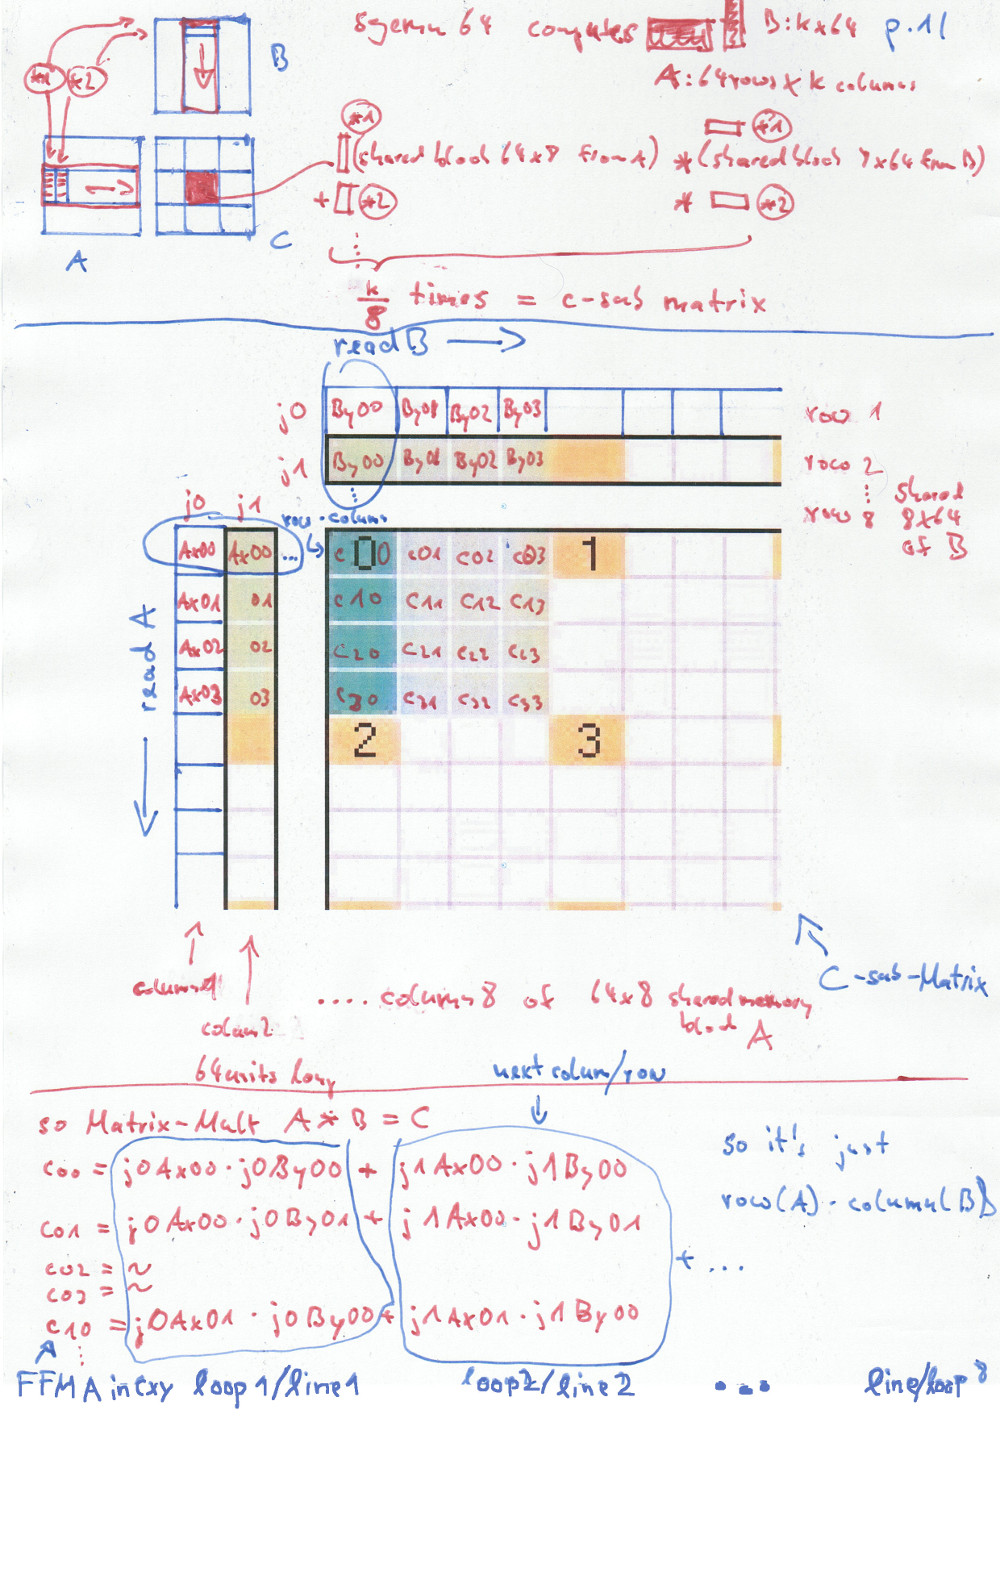 sgemm 64 computes B: k x 64 p.1/
A: 64 rows x k columns
B
*1 *2
A
C
*1 *1
(shared block 64x8 from A) * (shared block 8x64 from B)
+ *2 * *2
k/8 times = c-sub matrix
read B
j0 By00 By01 By02 By03 row 1
j1 By00 By01 By02 By03 row 2
row 8
shared
8x64
of B
j0 j1
row·column
Ax00 Ax00 ... c00 c01 c02 c03 0 1
Ax01 01 c10 c11 c12 c13
Ax02 02 c20 c21 c22 c23
Ax03 03 c30 c31 c32 c33
2 3
read A
C-sub-Matrix
column1
colum2
.... column 8 of 64x8 shared memory
block A
64 units long
next colum/row
so Matrix-Mult A * B = C
c00 = j0Ax00 · j0By00 + j1Ax00 · j1By00
c01 = j0Ax00 · j0By01 + j1Ax00 · j1By01
c02 = ~
c03 = ~
c10 = j0Ax01 · j0By00 + j1Ax01 · j1By00
+ ...
so it's just
row(A) · column(B)
FFMA in cxy loop1/line1 loop2/line2 ... line/loop 8